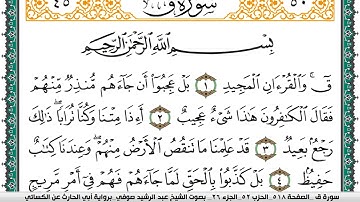 ٥٠ سُورَةُ ق ٤٥
بِسْمِ ٱللَّهِ ٱلرَّحْمَٰنِ ٱلرَّحِيمِ
قٓۚ وَٱلْقُرْءَانِ ٱلْمَجِيدِ ١ بَلْ عَجِبُوٓا۟ أَن جَآءَهُم مُّنذِرٌ مِّنْهُمْ
فَقَالَ ٱلْكَٰفِرُونَ هَٰذَا شَىْءٌ عَجِيبٌ ٢ أَءِذَا مِتْنَا وَكُنَّا تُرَابًاۖ ذَٰلِكَ
رَجْعٌۢ بَعِيدٌ ٣ قَدْ عَلِمْنَا مَا تَنقُصُ ٱلْأَرْضُ مِنْهُمْۖ وَعِندَنَا كِتَٰبٌ
حَفِيظٌۢ ٤ بَلْ كَذَّبُوا۟ بِٱلْحَقِّ لَمَّا جَآءَهُمْ فَهُمْ فِىٓ أَمْرٍ مَّرِيجٍ
سورة ق . الصفحة ٥١٨ . الحزب ٥٢ . الجزء ٢٦ . بصوت الشيخ عبد الرشيد صوفي . برواية أبي الحارث عن الكسائي